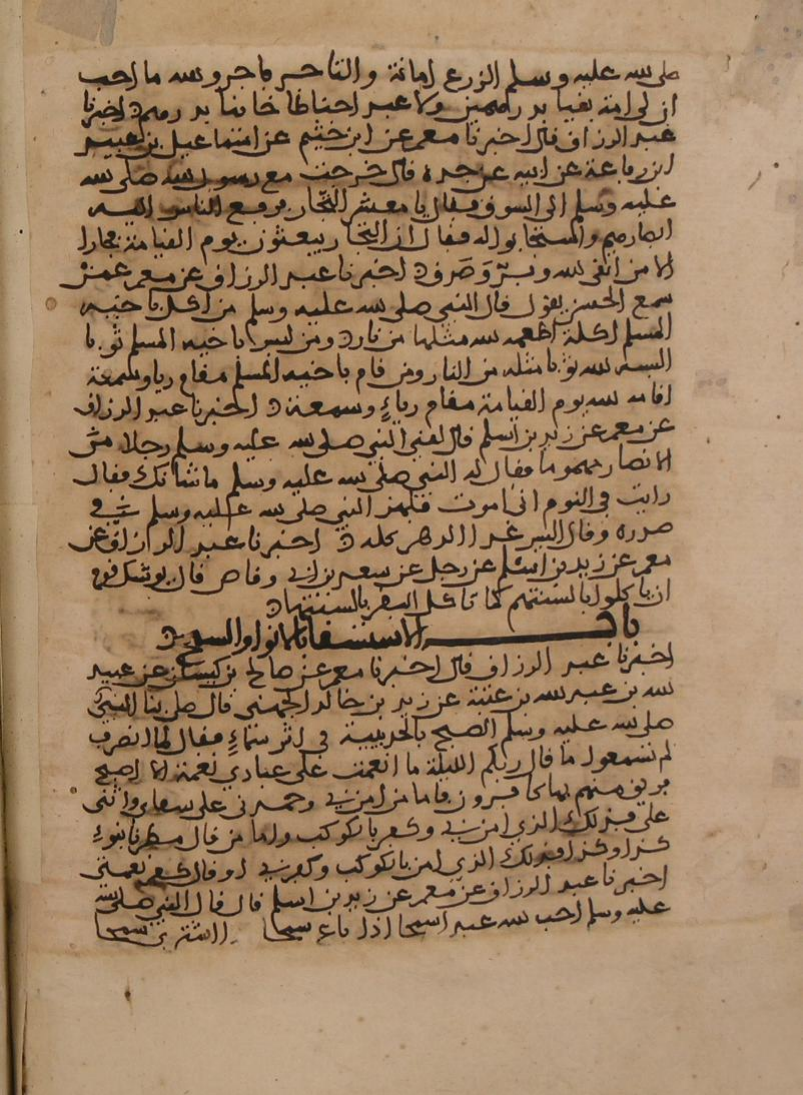 صلى الله عليه وسلم الزرع امانة والتاجر فاجر والله ما احب
ان لي امة بغيا بدرهمين ولا عبدا حناطا خائنا بدرهم اخبرنا
عبد الرزاق قال اخبرنا معمر عن ابن خثيم عن اسماعيل بن عبيد
ابن رفاعة عن ابيه عن جده قال خرجت مع رسول الله صلى الله
عليه وسلم الى السوق فقال يا معشر التجار فرفع الناس اليه
ابصارهم واستجابوا له فقال ان التجار يبعثون يوم القيامة فجارا
الا من اتقى الله وبر وصدق اخبرنا عبد الرزاق عن معمر عمن
سمع الحسن يقول قال النبي صلى الله عليه وسلم من اكل باخيه
المسلم اكلة اطعمه الله مثلها من نار ومن لبس باخيه المسلم ثوبا
البسه الله ثوبا مثله من النار ومن قام باخيه المسلم مقام رياء وسمعة
اقامه الله يوم القيامة مقام رياء وسمعة اخبرنا عبد الرزاق
عن معمر عن زيد بن اسلم قال لقي النبي صلى الله عليه وسلم رجلا من
الانصار مهموما فقال له النبي صلى الله عليه وسلم ما شانك فقال
رايت في النوم اني اموت فلهز النبي صلى الله عليه وسلم في
صدره وقال اليس غدا الدهر كله اخبرنا عبد الرزاق عن
معمر عن زيد بن اسلم عن رجل عن سعد بن ابي وقاص قال يوشك قوم
ان ياكلوا بالسنتهم كما تاكل البقر بالسنتها
باب الاستسقاء بالانواء والسمح
اخبرنا عبد الرزاق قال اخبرنا معمر عن صالح بن كيسان عن عبيد
الله بن عبد الله بن عتبة عن زيد بن خالد الجهني قال صلى بنا النبي
صلى الله عليه وسلم الصبح بالحديبية في اثر سماء فقال لما انصرف
لم تسمعوا ما قال ربكم الليلة ما انعمت على عبادي نعمة الا اصبح
فريق منهم بها كافرون فاما من امن بي وحمدني على سقياي واثنى
علي فذلك الذي امن بي وكفر بالكوكب واما من قال مطرنا بنوء
كذا وكذا فذلك الذي امن بالكوكب وكفر بي او قال كفر نعمتي
اخبرنا عبد الرزاق عن معمر عن زيد بن اسلم قال قال النبي صلى الله
عليه وسلم احب الله عبدا سمحا اذا باع سمحا اذا اشترى سمحا